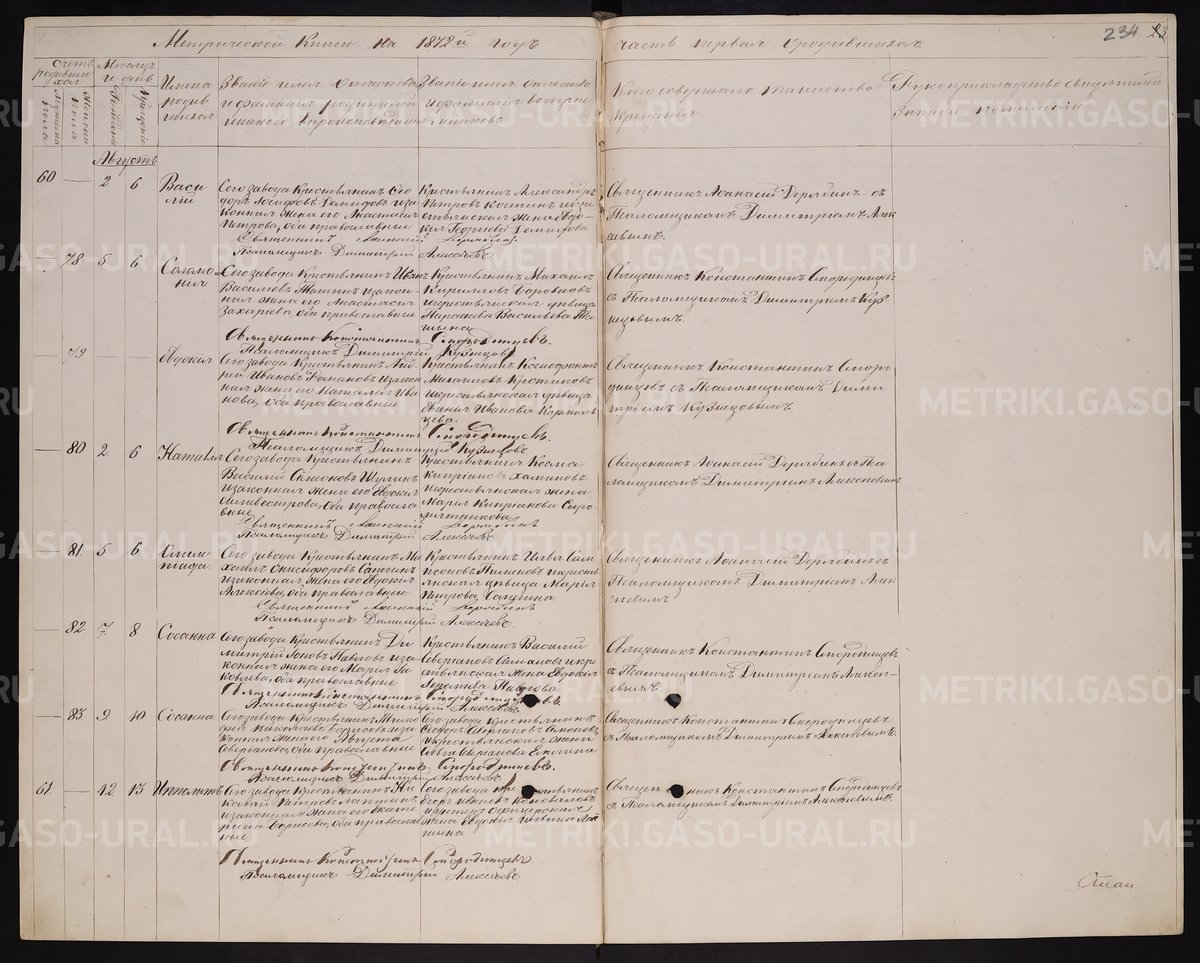 234 23
Метрической Книги на 1872й годъ
часть первая о родившихся
Счетъ родившихся
Мужеска пола
Женска пола
Мѣсяцъ и день
Рожденія
Крещенія
Имена родившихся
Званіе имя отчество и фамилія родителей и какого вѣроисповѣданія
Званіе имя отчество и фамилія воспріемниковъ
Кто совершалъ таинство крещенія
Рукоприкладство свидѣтелей записи по желанію
Августъ
60 — 2 6 Василій
Сего завода Крестьянинъ Ѳедоръ Іосифовъ Демидовъ и законная жена его Анастасія Петрова, оба православные
Крестьянинъ Александръ Петровъ Костинъ и крестьянская жена Евдокия Георгіева Демидова
Священникъ Аѳанасій Дерябинъ съ
Псаломщикомъ Димитріемъ Алексѣевымъ.
Священникъ Аѳанасій Дерябинъ.
Псаломщикъ Димитрій Алексѣевъ
— 78 5 6 Соломонія
Сего завода Крестьянинъ Иванъ Васильевъ и законная жена его Анастасія Захарова оба православные
Крестьянинъ Михаилъ Кирилловъ и крестьянская дѣвица Параскева Васильева
Священникъ Константинъ Смородинцевъ
съ Псаломщикомъ Димитріемъ Кузнецовымъ.
Священникъ Константинъ Смородинцевъ.
Псаломщикъ Димитрій Кузнецовъ
— 79 — — Евдокия
Сего завода Крестьянинъ Ивановъ Романовъ и законная жена его Наталія Иванова, оба православные
Крестьянинъ Ксенофонтъ и крестьянская дѣвица Иванова
Священникъ Константинъ Смородинцевъ съ Псаломщикомъ Димитріемъ Кузнецовымъ.
Священникъ Константинъ Смородинцевъ.
Псаломщикъ Димитрій Кузнецовъ
— 80 2 6 Наталія
Сего завода Крестьянинъ Василій Симеоновъ и законная жена его Евдокія Сильвестрова, оба православные
Крестьянинъ Косма Кипріановъ и крестьянская жена Марія Кипріанова Сыромятникова
Священникъ Аѳанасій Дерябинъ съ Псаломщикомъ Димитріемъ Алексѣевымъ
Священникъ Аѳанасій Дерябинъ
Псаломщикъ Димитрій Алексѣевъ
— 81 5 6 Олимпіада
Сего завода Крестьянинъ Михаилъ Онисифоровъ и законная жена его Евдокія Алексѣева, оба православные
Крестьянинъ Илья Сампсоновъ Пименовъ и крестьянская дѣвица Марія Петрова
Священникъ Аѳанасій Дерябинъ съ
Псаломщикомъ Димитріемъ Алексѣевымъ
Священникъ Аѳанасій Дерябинъ
Псаломщикъ Димитрій Алексѣевъ.
— 82 7 8 Сосанна
Сего завода Крестьянинъ Димитрій Іоновъ Павловъ и законная жена его Марія Іаковлева, оба православные
Крестьянинъ Василій Северіановъ и крестьянская жена Евдокія Павлова
Священникъ Константинъ Смородинцевъ
съ Псаломщикомъ Димитріемъ Алексѣевымъ.
Священникъ Константинъ Смородинцевъ.
Псаломщикъ Димитрій Алексѣевъ
— 83 9 10 Сосанна
Сего завода Крестьянинъ Тимофей Николаевъ Борисовъ и законная жена его Августа Северіанова, оба православные
Сего завода крестьянинъ Ѳедоръ и крестьянская жена
Священникъ Константинъ Смородинцевъ
съ Псаломщикомъ Димитріемъ Алексѣевымъ.
Священникъ Константинъ Смородинцевъ.
Псаломщикъ Димитрій Алексѣевъ
61 — 12 13 Ипполитъ
Сего завода Крестьянинъ Николай Петровъ и законная жена его Екатерина Борисова, оба православные
Сего завода крестьянинъ Егоръ Ивановъ Коноваловъ и жена Евдокія
Священникъ Константинъ Смородинцевъ
съ Псаломщикомъ Димитріемъ Алексѣевымъ.
Священникъ Константинъ Смородинцевъ.
Псаломщикъ Димитрій Алексѣевъ
METRIKI.GASO-URAL.RU